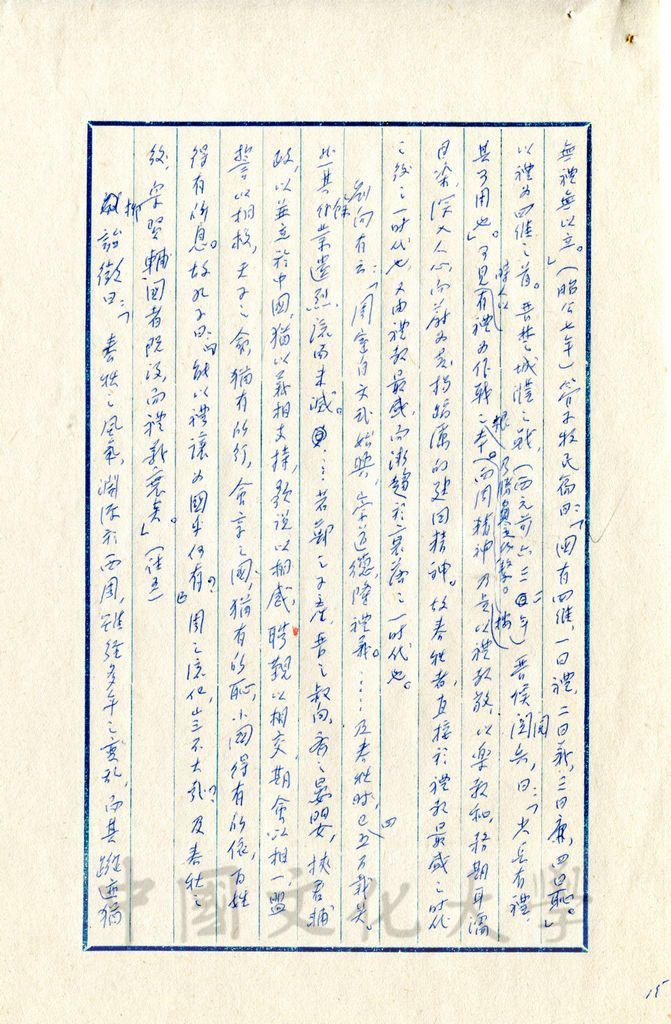 無禮無以立。」(昭公七年)管子牧民篇曰:「國有四維,一曰禮,二曰義,三曰廉,四曰恥。」
以禮為四維之首。晉楚城濮之戰,(西元前六三二年)晉侯閱兵,曰:「少長有禮,
其可用也」。可見時人以有禮為作戰之本。周精神力是以禮教敬,以樂教和,務期耳濡
目染,深入人心,而蔚為
建國精神。故春秋者,直接於禮教最盛之時代
之後之一時代也,又由禮教最盛,而漸趨於衰落之一時代也。
劉向有云:「周室自文武始興,崇道德,隆禮義。……及春秋時,已四五百載矣。
然其餘業遺烈,流而未滅。……若鄭之子產,晉之叔向,齊之晏嬰,挾君輔
政,以並立於中國,猶以義相支持,歌說以相感,聘覲以相交,期會以相一,盟
誓以相救,天子之命,猶有所行,會享之國,猶有所恥,小國得有所依,百姓
得有所息。故孔子曰:『能以禮讓為國乎何有?』周之流化,豈不大哉?及春秋之
後,眾賢輔國者既沒,而禮義衰矣。」(註五)
柳詒徵曰:「春秋之風氣,淵源於西周,雖經多年之變亂,而其蹤迹猶
15
中國文化大學